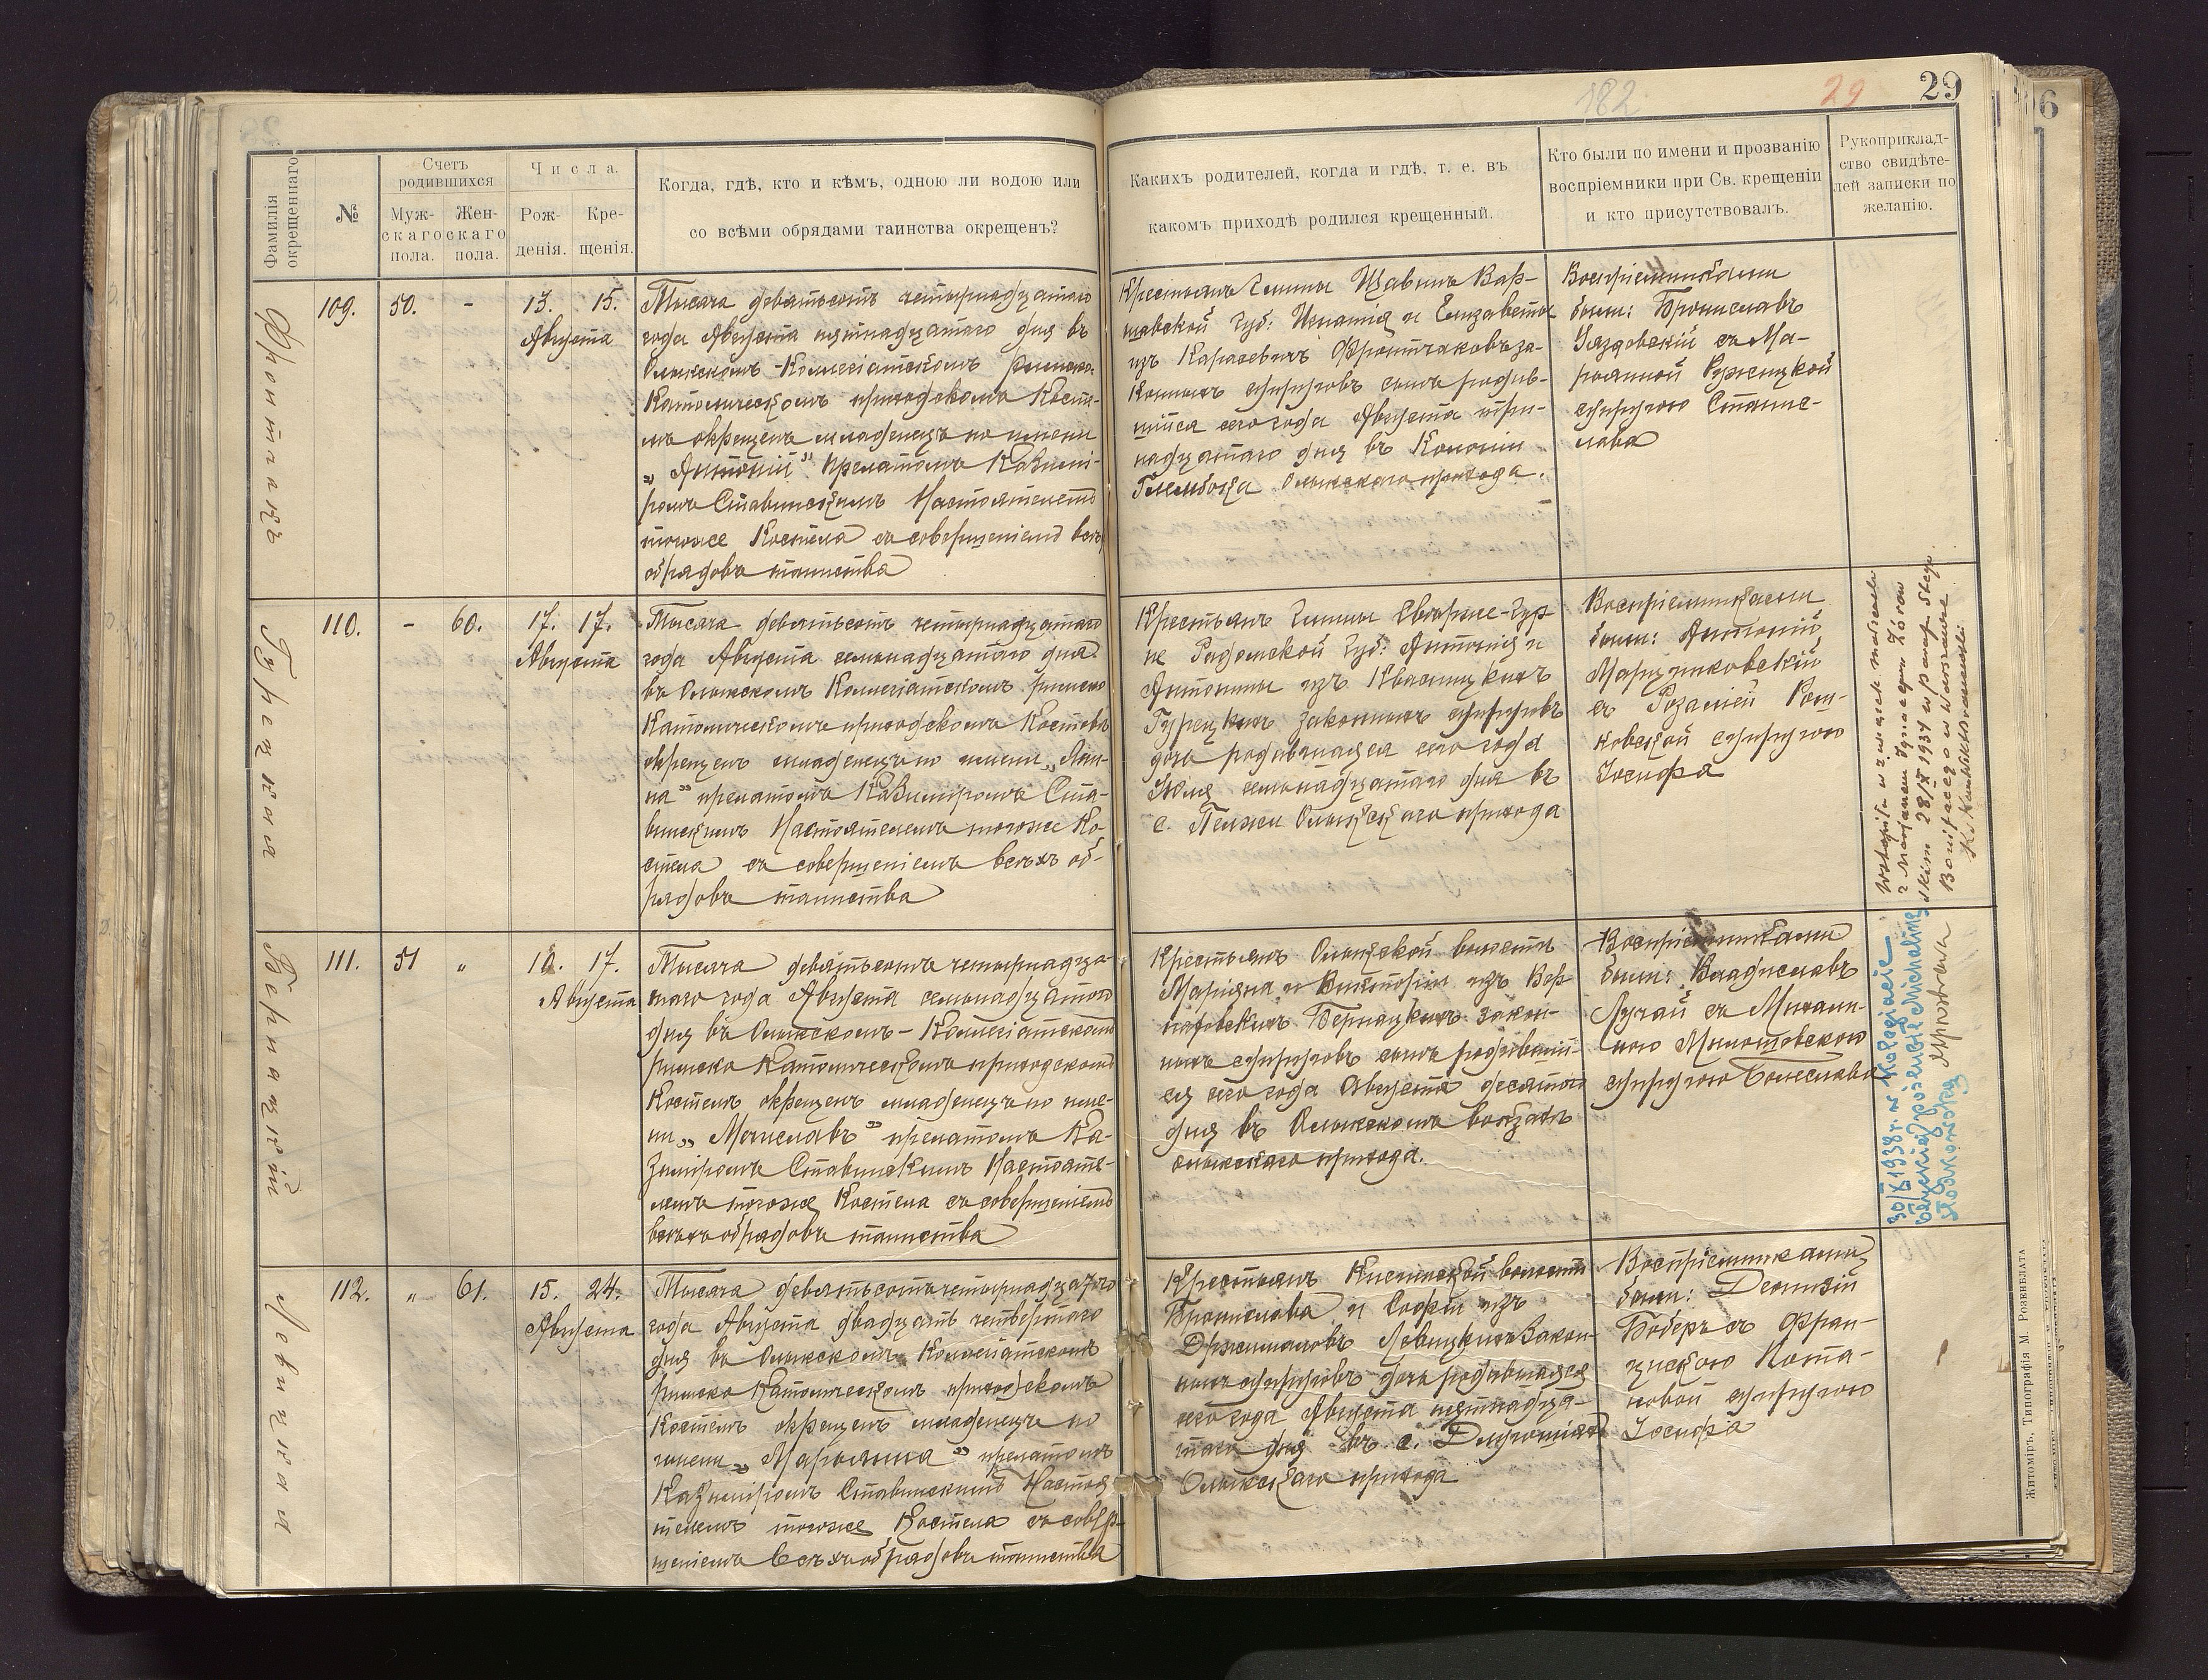 182
29
29
6
Фамилія окрещеннаго
№
Счетъ родившихся
Муж-
скаго
пола.
Жен-
скаго
пола.
Числа.
Рож-
денія.
Кре-
щенія.
Когда, гдѣ, кто и кѣмъ, одною ли водою или
со всѣми обрядами таинства окрещенъ?
Какихъ родителей, когда и гдѣ, т. е. въ
какомъ приходѣ родился крещенный.
Кто были по имени и прозванію
воспріемники при Св. крещеніи
и кто присутствовалъ.
Рукоприклад-
ство свидѣте-
лей записки по
желанію.
Фронтчакъ
109. 50. - 13. 15.
Августа
Тысяча девятьсотъ четырнадцатаго
года Августа пятнадцатаго дня въ
Олыкскомъ-Коллегіатскомъ римско-
Католическомъ приходскомъ Косте-
лѣ окрещенъ младенецъ по имени
„Антоній" прелатомъ Казимі-
ромъ Ставинскимъ Настоятелемъ
тогоже Костела съ совершеніемъ всѣхъ
обрядовъ таинства
Крестьянъ Гмины Щавинъ Вар-
шавской губ: Игнатія и Елизаветы
изъ Карасевичъ Фронтчаковъ за-
конныхъ супруговъ сынъ родив-
шійся сего года Августа три-
надцатаго дня въ Колоніи
Глембока Олыкскаго прихода.
Воспріемниками
были: Брониславъ
Уяздовскій съ Ма-
ріанной Ружицкой
супругою Станис-
лава
Гурецкая
110. - 60. 17. 17.
Августа
Тысяча девятьсотъ четырнадцатаго
года Августа семнадцатаго дня
въ Олыкскомъ Коллегіатскомъ римско
Католическомъ приходскомъ Костелѣ
окрещенъ младенецъ по имени „Ян-
на" прелатомъ Казиміромъ Ста-
винскимъ Настоятелемъ тогоже Ко-
стела съ совершеніемъ всѣхъ об-
рядовъ таинства
Крестьянъ Гмины Сверже-Гур-
не Радомской Губ: Антонія и
Антонины изъ Квасницкихъ
Гурецкихъ законныхъ супруговъ
дочь родившаяся сего года
Іюля семнадцатаго дня въ
с. Пелжи Олыкскаго прихода
Воспріемниками
были: Антоній
Марцинковскій
съ Розаліей Рош-
ковской супругою
Іосифа
Wstąpiła w związek małżeń
z Marjanem Ignacym Żóraw
skim 28/X 1934 w paraf. Stego
Bonifacego w Warszawie.
Бернацкій
111. 51 „ 10. 17.
Августа
Тысяча девятьсотъ четырнадца-
таго года Августа семнадцатаго
дня въ Олыкскомъ-Коллегіатскомъ
римско Католическомъ приходскомъ
Костелѣ окрещенъ младенецъ по име-
ни „Мечиславъ" прелатомъ Ка-
зиміромъ Ставинскимъ Настояте-
лемъ тогоже Костела съ совершеніемъ
всѣхъ обрядовъ таинства
Крестьянъ Олыкской волости
Маріяна и Викторіи изъ Вор-
наковскихъ Бернацкихъ закон-
ныхъ супруговъ сынъ родившій-
ся сего года Августа десятаго
дня въ Олыкскомъ вокзалѣ
Олыкскаго прихода.
Воспріемниками
были: Владиславъ
Лучай съ Михали-
ною Милошевскою
супругою Болеслава
30/X 1938 r. w Kolegjacie
Łuckiej pojął Michalinę
Лѣвицкая
112. „ 61. 15. 24.
Августа
Тысяча девятьсотъ четырнадцатаго
года Августа двадцать четвертаго
дня въ Олыкскомъ Коллегіатскомъ
римско Католическомъ приходскомъ
Костелѣ окрещенъ младенецъ по
имени „Марьянна" прелатомъ
Казиміромъ Ставинскимъ Настоя
телемъ тогоже Костела съ совер-
шеніемъ всѣхъ обрядовъ таинства
Бронислава и Софіи изъ
Држималовъ Лѣвицкихъ закон-
ныхъ супруговъ дочь родившаяся
сего года Августа пятнадца-
таго дня въ с.
Олыкскаго прихода
Воспріемниками
были: Деонизій
Боберъ съ Фран-
цискою Пота-
повой супругою
Іосифа
Житоміръ, Типографія М. Розенблата